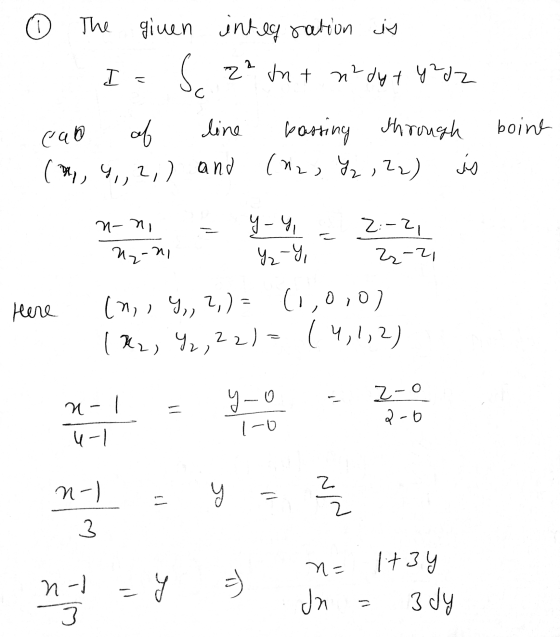 ① The given integration is
I = ∫_C z² dx + x² dy + y² dz
eqn of line passing through point
(x₁, y₁, z₁) and (x₂, y₂, z₂) is
(x-x₁)/(x₂-x₁) = (y-y₁)/(y₂-y₁) = (z-z₁)/(z₂-z₁)
Here (x₁, y₁, z₁) = (1,0,0)
(x₂, y₂, z₂) = (4,1,2)
(x-1)/(4-1) = (y-0)/(1-0) = (z-0)/(2-0)
(x-1)/3 = y = z/2
(x-1)/3 = y ⇒ x = 1+3y
dx = 3dy